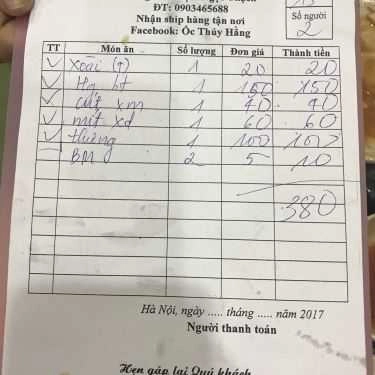 ĐT: 0903465688
Nhận ship hàng tận nơi
Facebook: Ốc Thúy Hằng
Số người
2
TT Món ăn Số lượng Đơn giá Thành tiền
xoài 1 20 20
1 150 150
xm 1 40 40
mít xđ 1 60 60
1 100 100
BM 2 5 10
380
Hà Nội, ngày ..... tháng ..... năm 2017
Người thanh toán
Hẹn gặp lại Quý khách